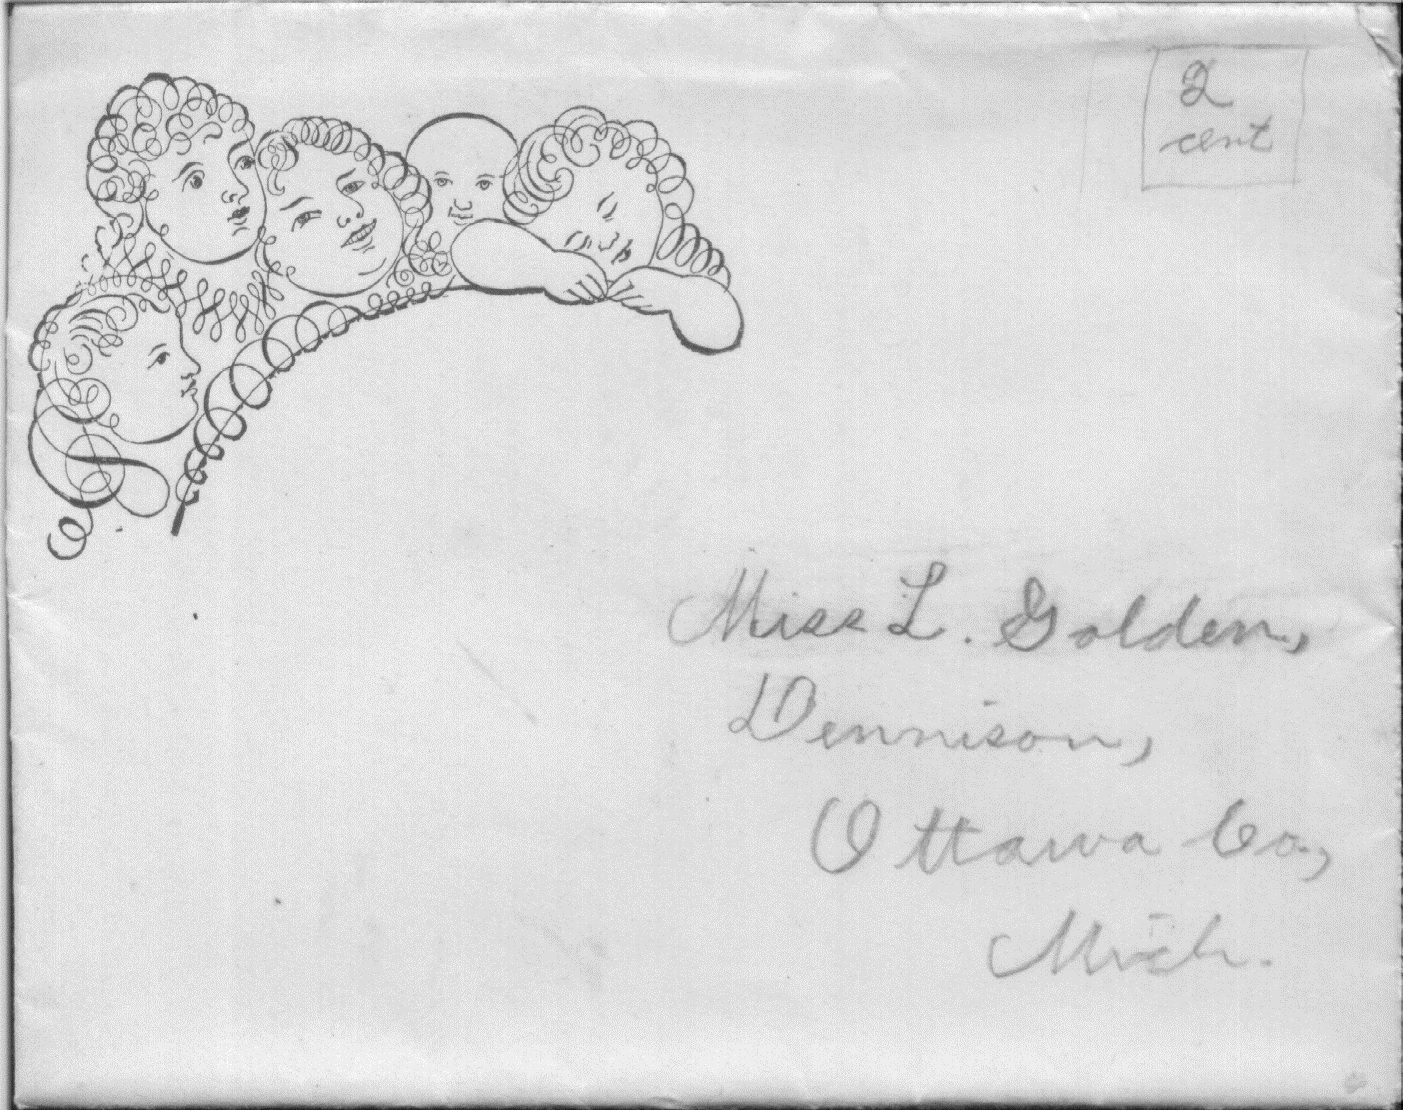 2
cent
Miss L. Golden,
Dennison,
Ottawa Co.,
Mich.